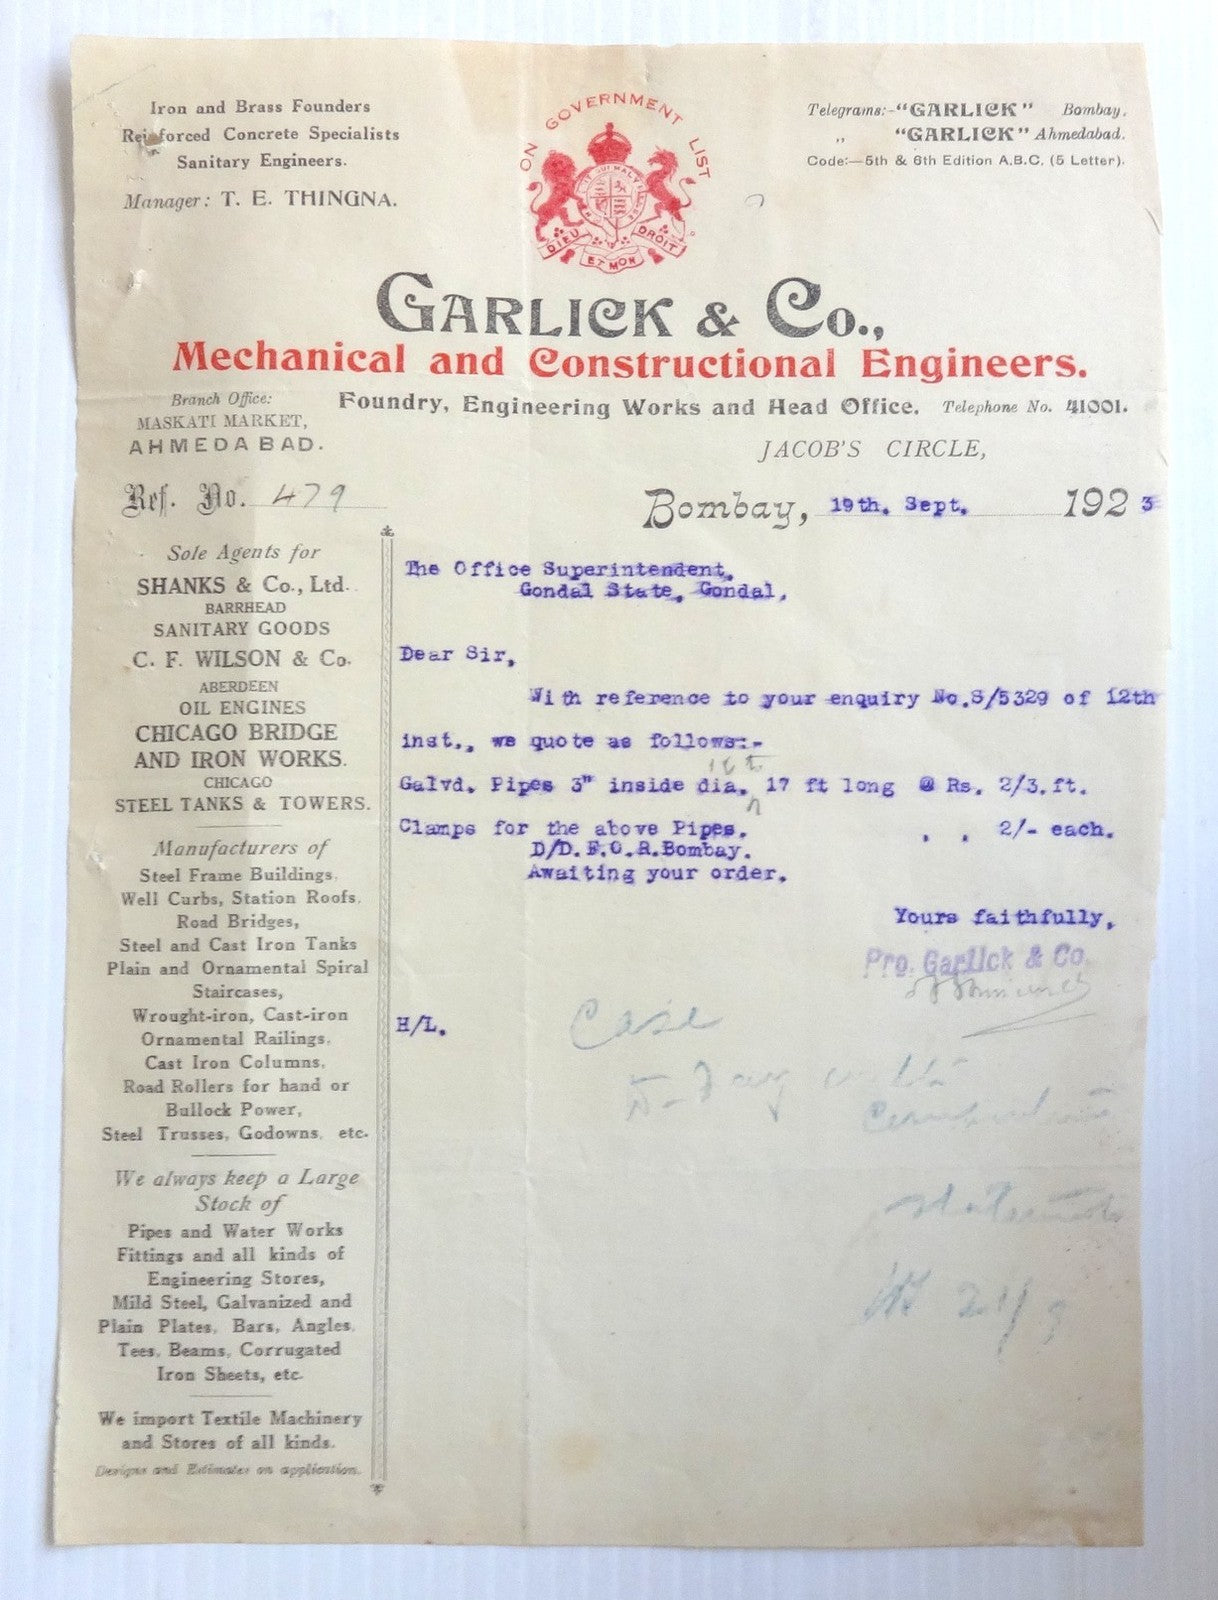 Iron and Brass Founders
Reinforced Concrete Specialists
Sanitary Engineers.
Manager: T. E. THINGNA.
ON GOVERNMENT LIST
DIEU ET MON DROIT
Telegrams:-"GARLICK" Bombay.
,, "GARLICK" Ahmedabad.
Code:—5th & 6th Edition A.B.C. (5 Letter).
GARLICK & Co.,
Mechanical and Constructional Engineers.
Branch Office:
MASKATI MARKET,
AHMEDABAD.
Foundry, Engineering Works and Head Office. Telephone No. 41001.
JACOB'S CIRCLE,
Ref. No. 479
Bombay, 19th. Sept. 1923
Sole Agents for
SHANKS & Co., Ltd.
BARRHEAD
SANITARY GOODS
C. F. WILSON & Co.
ABERDEEN
OIL ENGINES
CHICAGO BRIDGE
AND IRON WORKS.
CHICAGO
STEEL TANKS & TOWERS.
Manufacturers of
Steel Frame Buildings,
Well Curbs, Station Roofs,
Road Bridges,
Steel and Cast Iron Tanks
Plain and Ornamental Spiral
Staircases,
Wrought-iron, Cast-iron
Ornamental Railings,
Cast Iron Columns,
Road Rollers for hand or
Bullock Power,
Steel Trusses, Godowns, etc.
We always keep a Large
Stock of
Pipes and Water Works
Fittings and all kinds of
Engineering Stores,
Mild Steel, Galvanized and
Plain Plates, Bars, Angles,
Tees, Beams, Corrugated
Iron Sheets, etc.
We import Textile Machinery
and Stores of all kinds.
Designs and Estimates on application.
The Office Superintendent,
Gondal State, Gondal,
Dear Sir,
With reference to your enquiry No.S/5329 of 12th
inst., we quote as follows:-
Galvd. Pipes 3" inside dia, 17 ft long @ Rs. 2/3.ft.
Clamps for the above Pipes. , , 2/- each.
D/D.F.O.R.Bombay.
Awaiting your order.
Yours faithfully,
Pro. Garlick & Co.
H/L.
Case